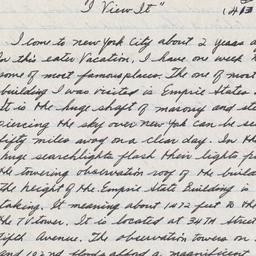 I View It"
I come to new York City about 2 years a
In this eater Vacation, I have one week t
some of most famous places. The one of most
building I was visited is Empire States
It is the huge shaft of masony and ste
piercing the sky over new York can be se
fifty miles away on a clear day. In th
huge searchlights flash their lights f
the towering observation roof of the build
the height of the Empire State Building is
taking. It meaning about 1472 feet to the
the TV tower. It is located at 34TH Street
fifth Avenue. The observation towers on
and 102nd floods afford a magnificent